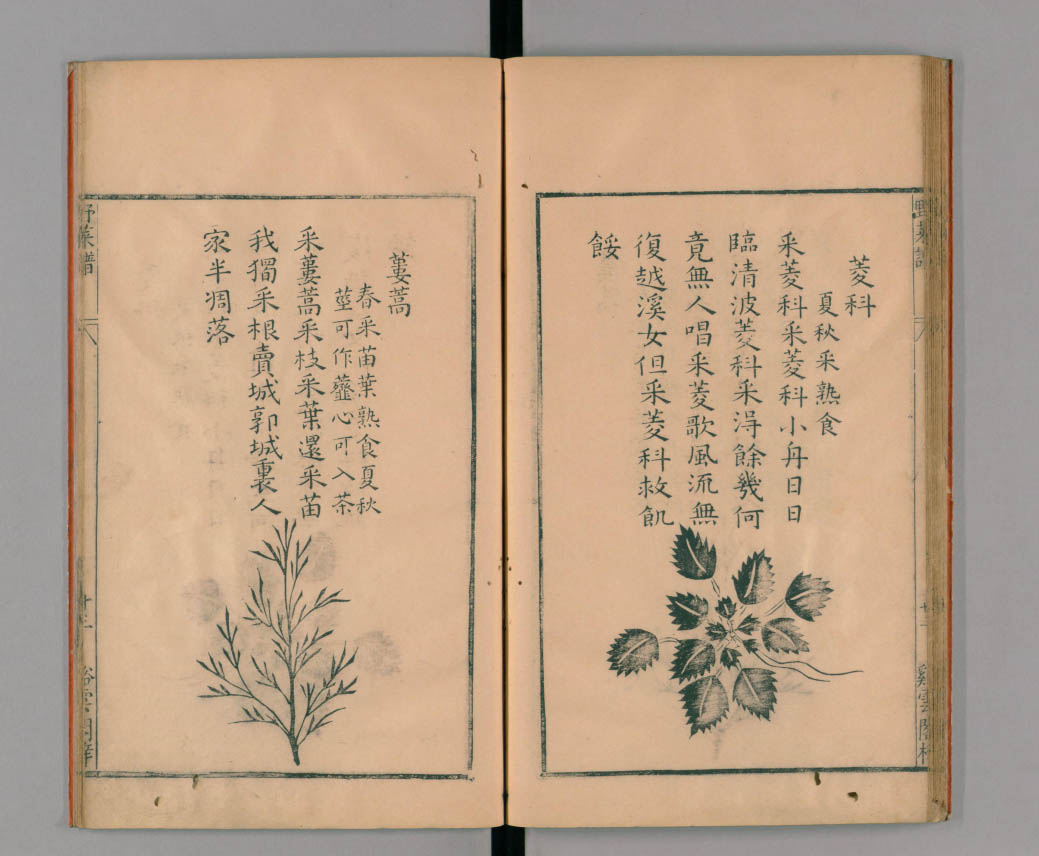 菱科
夏秋采熟食
采菱科采菱科小舟日日
臨清波菱科采淂餘幾何
竟無人唱采菱歌風流無
復越溪女但采菱科救飢
餒
蔞蒿
春采苗葉熟食夏秋
莖可作虀心可入茶
采蔞蒿采枝采葉還采苗
我獨采根賣城郭城裏人
家半凋落
野菜譜